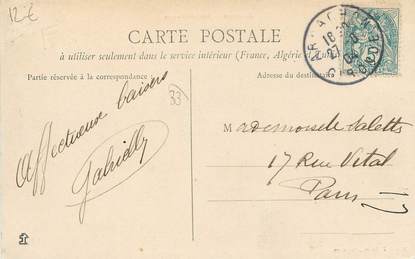 12€
CARTE POSTALE
à utiliser seulement dans le service intérieur (France, Algérie
Partie réservée à la correspondance
Adresse du destinataire
33
Affectueux baisers
Gabrielle
Mademoiselle Valette
17 Rue Vital
Paris